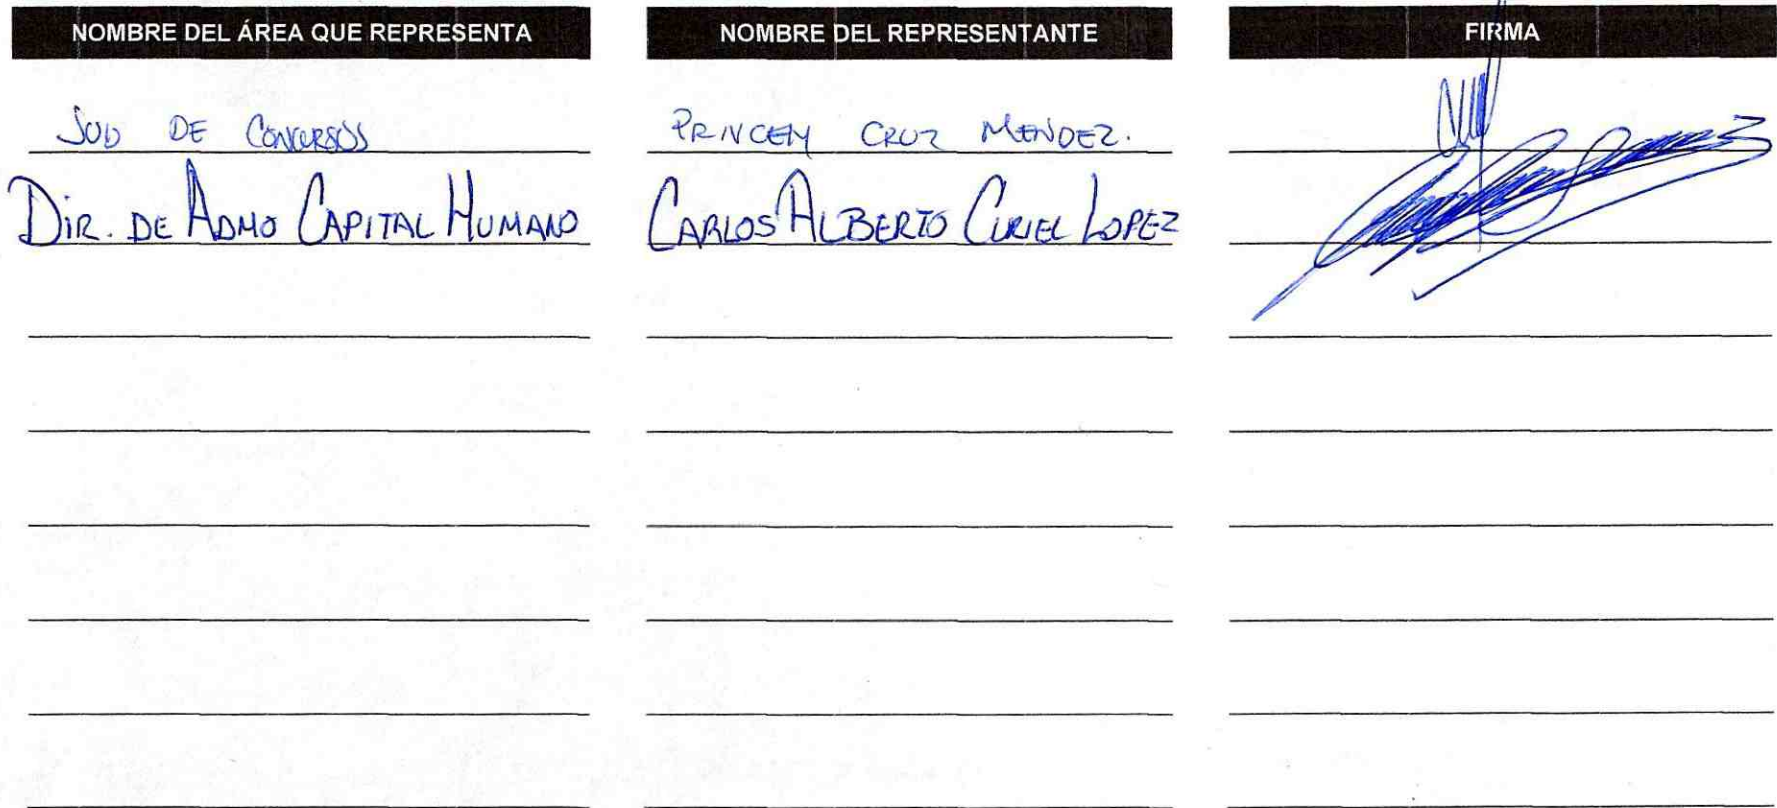 NOMBRE DEL ÁREA QUE REPRESENTA NOMBRE DEL REPRESENTANTE FIRMA
JUD DE CONCURSOS PRINCEM CRUZ MENDEZ.
DIR. DE ADMO CAPITAL HUMANO CARLOS ALBERTO CURIEL LOPEZ